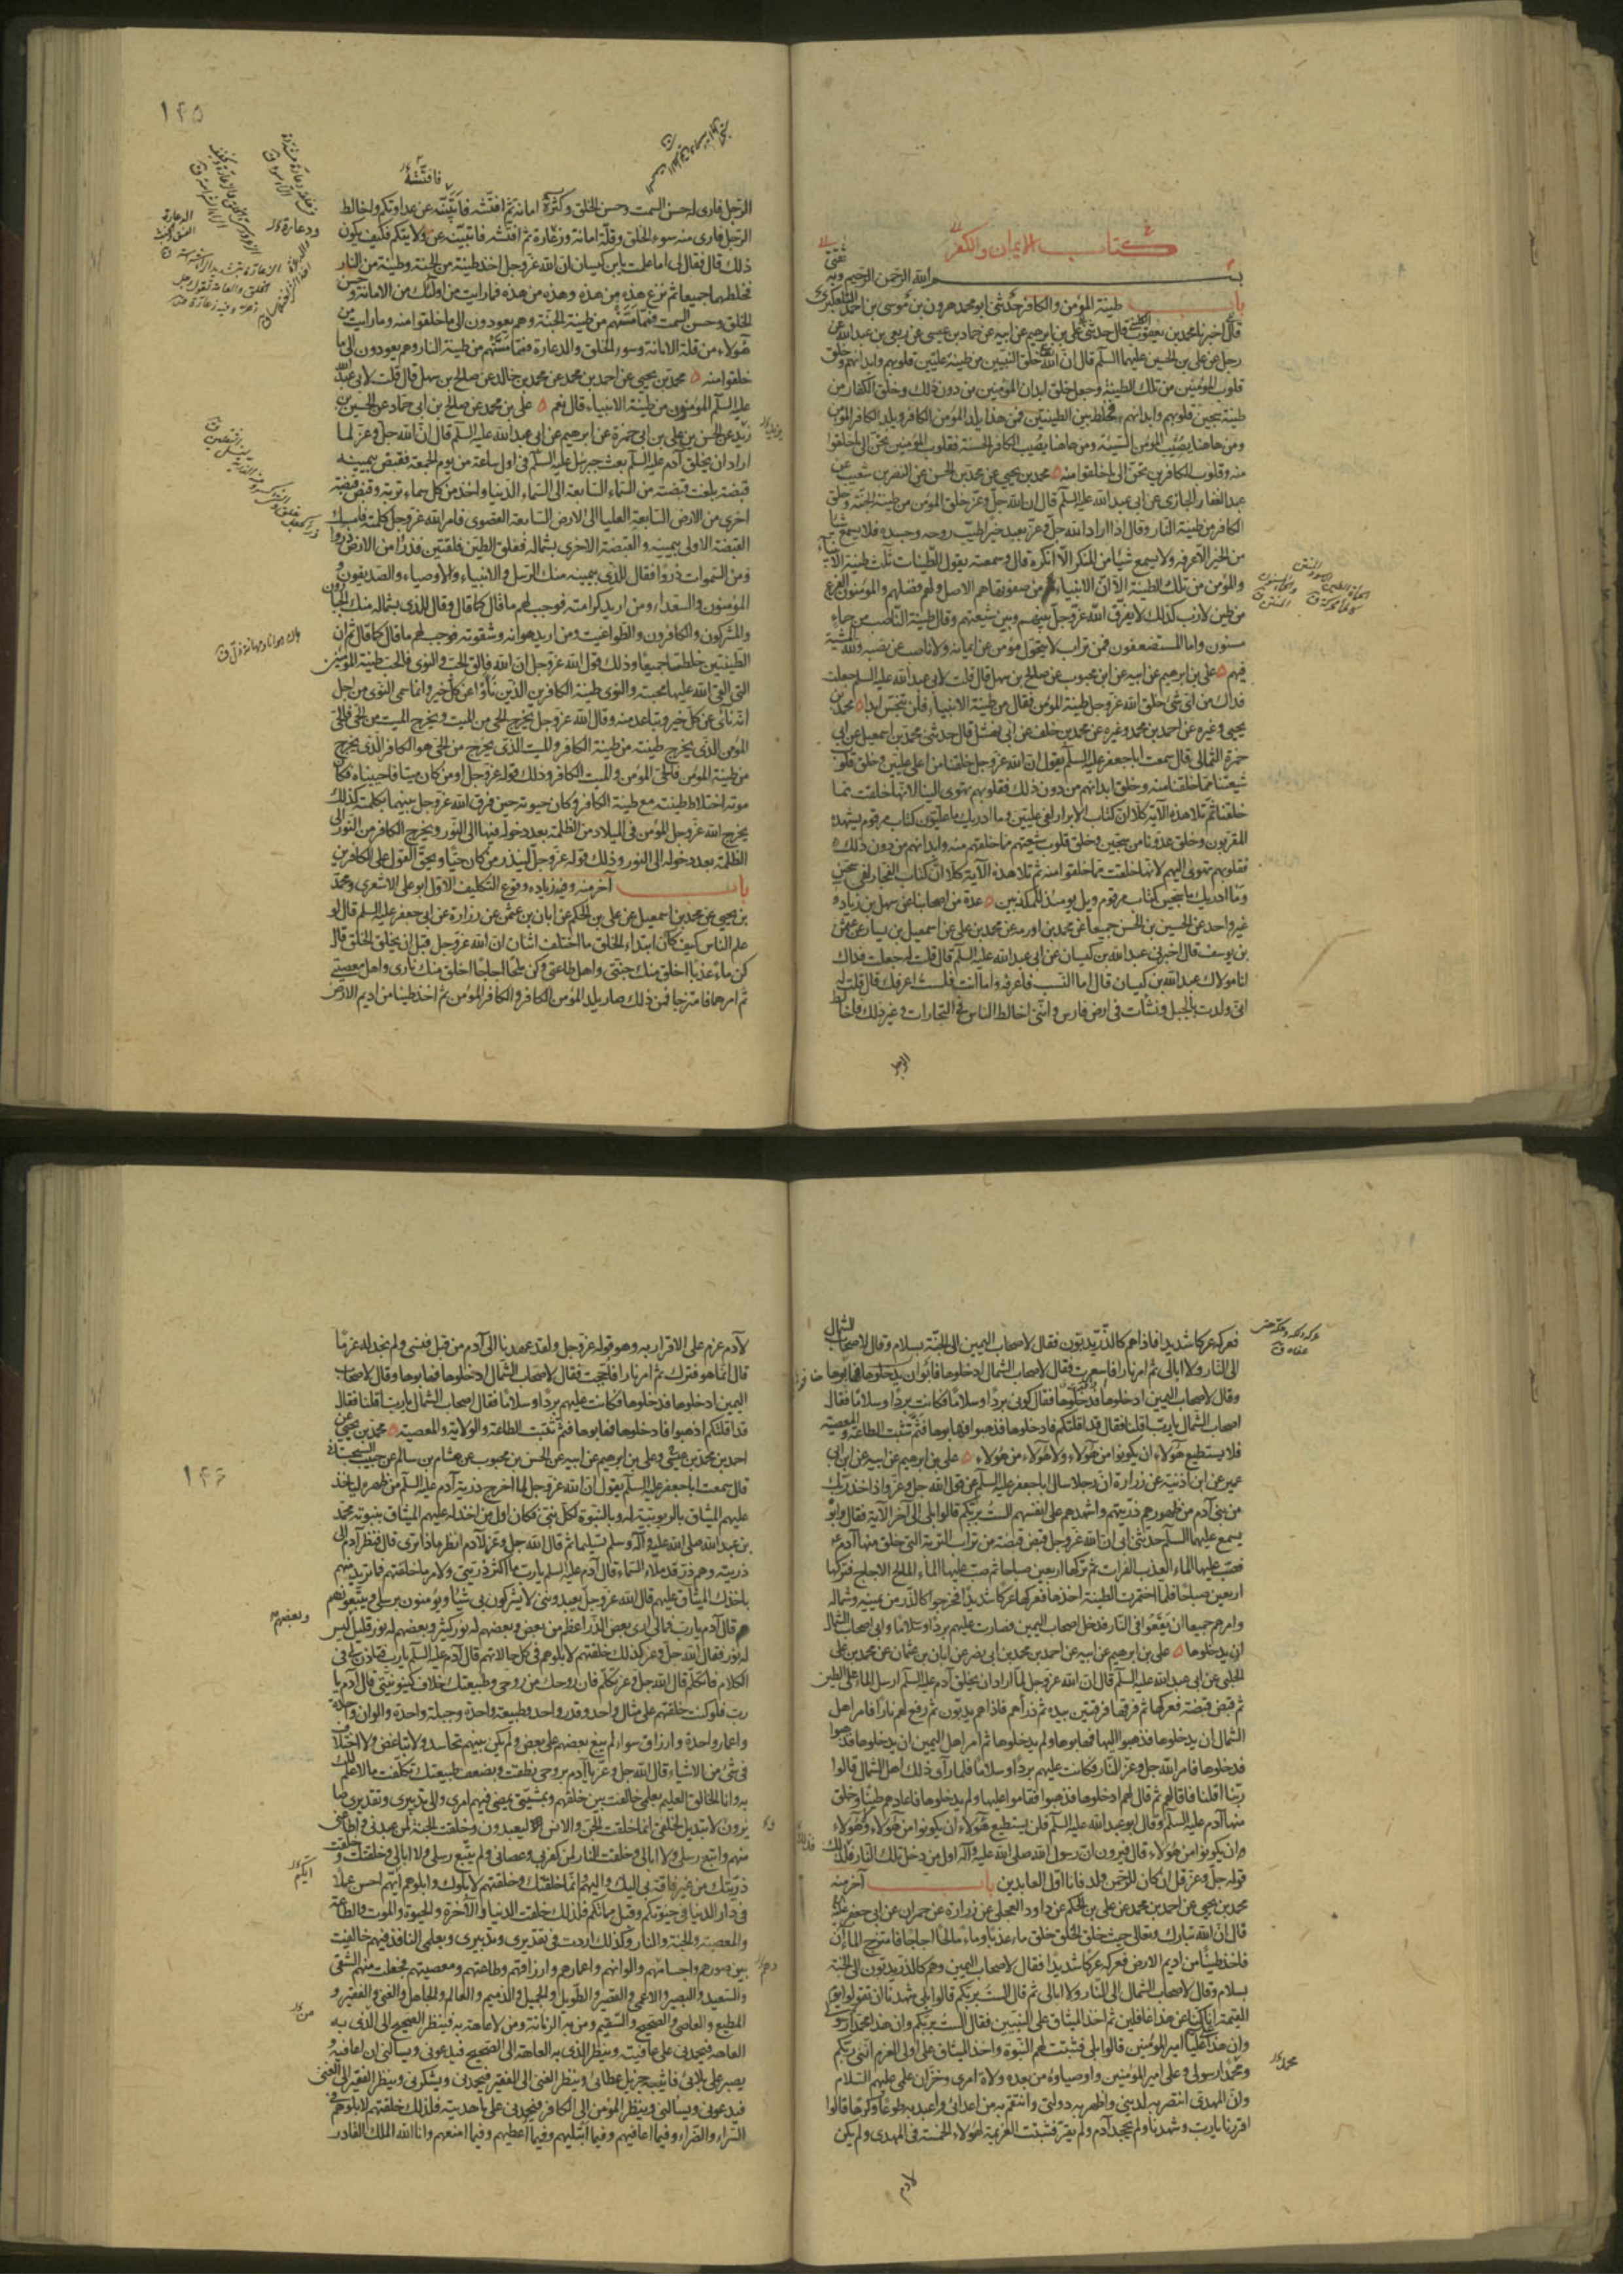 كتاب الايمان والكفر
بسم الله الرحمن الرحيم وبه ثقتي
باب طينة المؤمن والكافر حدثني ابو محمد هرون بن موسى بن احمد التلعكبري
قال اخبرنا محمد بن يعقوب الكليني قال حدثني علي بن ابرهيم عن ابيه عن حماد بن عيسى عن ربعي بن عبد الله عن
رجل عن علي بن الحسين عليهما السلم قال ان الله خلق النبيين من طينة عليين قلوبهم وابدانهم وخلق
قلوب المؤمنين من تلك الطينة وجعل خلق ابدان المؤمنين من دون ذلك وخلق الكفار من
طينة سجين قلوبهم وابدانهم فخلط بين الطينتين فمن هذا يلد المؤمن الكافر ويلد الكافر المؤمن
ومن هاهنا يصيب المؤمن السيئة ومن هاهنا يصيب الكافر الحسنة فقلوب المؤمنين تحن الى ما خلقوا
منه وقلوب الكافرين تحن الى ما خلقوا منه محمد بن يحيى عن محمد بن الحسن عن النضر بن شعيب عن
عبد الغفار الجازي عن ابي عبد الله عليه السلم قال ان الله جل وعز خلق المؤمن من طينة الجنة وخلق
الكافر من طينة النار وقال اذا اراد الله جل وعز بعبد خيرا طيب روحه وجسده فلا يسمع شيئا
من الخير الا عرفه ولا يسمع شيئا من المنكر الا انكره قال وسمعته يقول الطينات ثلث طينة الانبياء
والمؤمن من تلك الطينة الا ان الانبياء هم من صفوتها هم الاصل ولهم فضلهم والمؤمنون الفرع
من طين لازب كذلك لا يفرق الله عز وجل بينهم وبين شيعتهم وقال طينة الناصب من حماء
مسنون واما المستضعفون فمن تراب لا يتحول مؤمن عن ايمانه ولا ناصب عن نصبه ولله المشية
فيهم علي بن ابرهيم عن ابيه عن ابن محبوب عن صالح بن سهل قال قلت لابي عبد الله عليه السلم جعلت
فداك من اي شيء خلق الله عز وجل طينة المؤمن فقال من طينة الانبياء فلن تنجس ابدا محمد بن
يحيى وغيره عن احمد بن محمد وغيره عن محمد بن خلف عن ابي نهشل قال حدثني محمد بن اسمعيل عن ابي
حمزة الثمالي قال سمعت ابا جعفر عليه السلم يقول ان الله عز وجل خلقنا من اعلى عليين وخلق قلوب
شيعتنا مما خلقنا منه وخلق ابدانهم من دون ذلك فقلوبهم تهوي الينا لانها خلقت مما
خلقنا ثم تلا هذه الآية كلا ان كتاب الابرار لفي عليين وما ادريك ما عليون كتاب مرقوم يشهده
المقربون وخلق عدونا من سجين وخلق قلوب شيعتهم مما خلقهم منه وابدانهم من دون ذلك
فقلوبهم تهوي اليهم لانها خلقت مما خلقوا منه ثم تلا هذه الآية كلا ان كتاب الفجار لفي سجين
وما ادريك ما سجين كتاب مرقوم ويل يومئذ للمكذبين عدة من اصحابنا عن سهل بن زياد و
غير واحد عن الحسين بن الحسن جميعا عن محمد بن اورمه عن محمد بن علي عن اسمعيل بن يسار عن عثمن
بن يوسف قال اخبرني عبد الله بن كيسان عن ابي عبد الله عليه السلم قال قلت له جعلت فداك
انا مولاك عبد الله بن كيسان قال اما النسب فاعرفه واما انت فلست اعرفك قال قلت له
اني ولدت بالجبل ونشأت في ارض فارس وانني اخالط الناس في التجارات وغير ذلك فاخالط
الرجل
١٤٥
فافتشه
الرجل فارى له حسن السمت وحسن الخلق وكثرة امانة ثم افتشه فاتبينه عن عداوتكم واخالط
الرجل فارى منه سوء الخلق وقلة امانة وزعارة ثم افتشه فاتبينه عن ولايتكم فكيف يكون
ذلك قال فقال لي اما علمت يابن كيسان ان الله عز وجل اخذ طينة من الجنة وطينة من النار
فخلطهما جميعا ثم نزع هذه من هذه وهذه من هذه فما رايت من اولئك من الامانة وحسن
الخلق وحسن السمت فمما مستهم من طينة الجنة وهم يعودون الى ما خلقوا منه وما رايت من
هؤلاء من قلة الامانة وسوء الخلق والدعارة فمما مستهم من طينة النار وهم يعودون الى ما
خلقوا منه محمد بن يحيى عن احمد بن محمد عن محمد بن خالد عن صالح بن سهل قال قلت لابي عبد الله
عليه السلم المؤمنون من طينة الانبياء قال نعم علي بن محمد عن صالح بن ابي حماد عن الحسين بن
زيد عن الحسن بن علي بن ابي حمزة عن ابرهيم عن ابي عبد الله عليه السلم قال ان الله جل وعز لما
اراد ان يخلق آدم عليه السلم بعث جبرئيل عليه السلم في اول ساعة من يوم الجمعة فقبض بيمينه
قبضة بلغت قبضته من السماء السابعة الى السماء الدنيا واخذ من كل سماء تربة وقبض قبضة
اخرى من الارض السابعة العليا الى الارض السابعة القصوى فامر الله عز وجل كلمته فامسك
القبضة الاولى بيمينه والقبضة الاخرى بشماله ففلق الطين فلقتين فذرا من الارض ذروا
ومن السموات ذروا فقال للذي بيمينه منك الرسل والانبياء والاوصياء والصديقون و
المؤمنون والسعداء ومن اريد كرامته فوجب لهم ما قال كما قال وقال للذي بشماله منك الجبارون
والمشركون والكافرون والطواغيت ومن اريد هوانه وشقوته فوجب لهم ما قال كما قال ثم ان
الطينتين خلطتا جميعا وذلك قول الله عز وجل ان الله فالق الحب والنوى فالحب طينة المؤمنين
التي القى الله عليها محبته والنوى طينة الكافرين الذين نأوا عن كل خير وانما سمي النوى من اجل
انه نأى عن كل خير وتباعد منه وقال الله عز وجل يخرج الحي من الميت ويخرج الميت من الحي فالحي
المؤمن الذي يخرج طينته من طينة الكافر والميت الذي يخرج من الحي هو الكافر الذي يخرج
من طينة المؤمن فالحي المؤمن والميت الكافر وذلك قوله عز وجل اومن كان ميتا فاحييناه فكان
موته اختلاط طينته مع طينة الكافر وكان حيوته حين فرق الله عز وجل بينهما بكلمته كذلك
يخرج الله عز وجل المؤمن في الميلاد من الظلمة بعد دخوله فيها الى النور ويخرج الكافر من النور الى
الظلمة بعد دخوله الى النور وذلك قوله عز وجل لينذر من كان حيا ويحق القول على الكافرين
باب آخر منه وفيه زيادة وقوع التكليف الاول ابو علي الاشعري ومحمد
بن يحيى عن محمد بن اسمعيل عن علي بن الحكم عن ابان بن عثمن عن زرارة عن ابي جعفر عليه السلم قال لو
علم الناس كيف كان ابتداء الخلق ما اختلف اثنان ان الله عز وجل قبل ان يخلق الخلق قال
كن ماء عذبا اخلق منك جنتي واهل طاعتي وكن ملحا اجاجا اخلق منك ناري واهل معصيتي
ثم امرهما فامتزجا فمن ذلك صار يلد المؤمن الكافر والكافر المؤمن ثم اخذ طينا من اديم الارض
فعركه عركا شديدا فاذا هم كالذر يدبون فقال لاصحاب اليمين الى الجنة بسلام وقال لاصحاب الشمال
الى النار ولا ابالي ثم امر نارا فاسعرت فقال لاصحاب الشمال ادخلوها فهابوها
وقال لاصحاب اليمين ادخلوها فدخلوها فقال كوني بردا وسلاما فكانت بردا وسلاما فقال
اصحاب الشمال يا رب اقلنا فقال قد اقلتكم فادخلوها فذهبوا فهابوها فثم ثبتت الطاعة والمعصية
فلا يستطيع هؤلاء ان يكونوا من هؤلاء ولا هؤلاء من هؤلاء علي بن ابرهيم عن ابيه عن ابن ابي
عمير عن ابن اذينة عن زرارة ان رجلا سال ابا جعفر عليه السلم عن قول الله جل وعز واذ اخذ ربك
من بني آدم من ظهورهم ذريتهم واشهدهم على انفسهم الست بربكم قالوا بلى الى آخر الآية فقال وابوه
يسمع عليهما السلم حدثني ابي ان الله عز وجل قبض قبضة من تراب التربة التي خلق منها آدم ع
فصب عليها الماء العذب الفرات ثم تركها اربعين صباحا ثم صب عليها الماء المالح الاجاج فتركها
اربعين صباحا فلما اختمرت الطينة اخذها فعركها عركا شديدا فخرجوا كالذر من يمينه وشماله
وامرهم جميعا ان يقعوا في النار فدخل اصحاب اليمين فصارت عليهم بردا وسلاما وابى اصحاب الشمال
ان يدخلوها علي بن ابرهيم عن ابيه عن احمد بن محمد بن ابي نصر عن ابان بن عثمان عن محمد بن علي
الحلبي عن ابي عبد الله عليه السلم قال ان الله عز وجل لما اراد ان يخلق آدم عليه السلم ارسل الماء على الطين
ثم قبض قبضة فعركها ثم فرقها فرقتين بيده ثم ذرأهم فاذا هم يدبون ثم رفع لهم نارا فامر اهل
الشمال ان يدخلوها فذهبوا اليها فهابوها ولم يدخلوها ثم امر اهل اليمين ان يدخلوها فذهبوا
فدخلوها فامر الله جل وعز النار فكانت عليهم بردا وسلاما فلما رأى ذلك اهل الشمال قالوا
ربنا اقلنا فاقالهم ثم قال لهم ادخلوها فذهبوا فقاموا عليها ولم يدخلوها فاعادهم طينا وخلق
منها آدم عليه السلم وقال ابو عبد الله عليه السلم فلن يستطيع هؤلاء ان يكونوا من هؤلاء ولا هؤلاء
ان يكونوا من هؤلاء قال فيرون ان رسول الله صلى الله عليه وآله اول من دخل تلك النار فذلك
قوله جل وعز قل ان كان للرحمن ولد فانا اول العابدين باب آخر منه
محمد بن يحيى عن احمد بن محمد عن علي بن الحكم عن داود العجلي عن زرارة عن حمران عن ابي جعفر
قال ان الله تبارك وتعالى حيث خلق الخلق خلق ماء عذبا وماء مالحا اجاجا فامتزج الماءان
فاخذ طينا من اديم الارض فعركه عركا شديدا فقال لاصحاب اليمين وهم كالذر يدبون الى الجنة
بسلام وقال لاصحاب الشمال الى النار ولا ابالي ثم قال الست بربكم قالوا بلى شهدنا ان تقولوا يوم
القيمة انا كنا عن هذا غافلين ثم اخذ الميثاق على النبيين فقال الست بربكم وان هذا محمد رسولي
وان هذا علي امير المؤمنين قالوا بلى فثبتت لهم النبوة واخذ الميثاق على اولي العزم انني ربكم
ومحمد رسولي وعلي امير المؤمنين واوصياؤه من بعده ولاة امري وخزان علمي عليهم السلام
وان المهدي انتصر به لديني واظهر به دولتي وانتقم به من اعدائي واعبد به طوعا وكرها قالوا
اقررنا يا رب وشهدنا ولم يجحد آدم ولم يقر فثبتت العزيمة لهؤلاء الخمسة في المهدي ولم يكن
لادم
١٤٦
لآدم عزم على الاقرار به وهو قوله عز وجل ولقد عهدنا الى آدم من قبل فنسي ولم نجد له عزما
قال انما هو فترك ثم امر نارا فاججت فقال لاصحاب الشمال ادخلوها فهابوها وقال لاصحاب
اليمين ادخلوها فدخلوها فكانت عليهم بردا وسلاما فقال اصحاب الشمال يا رب اقلنا فقال
قد اقلتكم اذهبوا فادخلوها فهابوها فثم ثبتت الطاعة والولاية والمعصية محمد بن يحيى عن
احمد بن محمد بن عيسى وعلي بن ابرهيم عن ابيه عن الحسن بن محبوب عن هشام بن سالم عن حبيب السجستاني
قال سمعت ابا جعفر عليه السلم يقول ان الله عز وجل لما اخرج ذرية آدم عليه السلم من ظهره لياخذ
عليهم الميثاق بالربوبية له وبالنبوة لكل نبي فكان اول من اخذ له عليهم الميثاق بنبوته محمد
بن عبد الله صلى الله عليه وآله وسلم تسليما ثم قال الله جل وعز لآدم انظر ماذا ترى قال فنظر آدم الى
ذريته وهم ذر قد ملاء السماء قال آدم عليه السلم يا رب ما اكثر ذريتي ولامر ما خلقتهم فما تريد منهم
باخذك الميثاق عليهم قال الله عز وجل يعبدونني لا يشركون بي شيئا ويؤمنون برسلي ويتبعونهم
قال آدم يا رب فما لي ارى بعض الذر اعظم من بعض وبعضهم له نور كثير وبعضهم له نور قليل ليس
له نور فقال الله جل وعز كذلك خلقتهم لابلوهم في كل حالاتهم قال آدم عليه السلم يا رب فتاذن لي في
الكلام فاتكلم قال الله جل وعز تكلم فان روحك من روحي وطبيعتك خلاف كينونيتي قال آدم يا
رب فلو كنت خلقتهم على مثال واحد وقدر واحد وطبيعة واحدة وجبلة واحدة والوان واحدة
واعمار واحدة وارزاق سواء لم يبغ بعضهم على بعض ولم يكن بينهم تحاسد ولا تباغض ولا اختلاف
في شيء من الاشياء قال الله جل وعز يا آدم بروحي نطقت وبضعف طبيعتك تكلفت ما لا علم لك
به وانا الخالق العليم بعلمي خالفت بين خلقهم وبمشيتي يمضي فيهم امري والى تدبيري وتقديري صا
يرون لا تبديل لخلقي انما خلقت الجن والانس ليعبدون وخلقت الجنة لمن عبدني واطاعني
منهم واتبع رسلي ولا ابالي وخلقت النار لمن كفر بي وعصاني ولم يتبع رسلي ولا ابالي وخلقتك و
ذريتك من غير فاقة بي اليك واليهم وانما خلقتك وخلقتهم لابلوك وابلوهم ايهم احسن عملا
في دار الدنيا في حيوتكم وقبل مماتكم فلذلك خلقت الدنيا والآخرة والحيوة والموت والطاعة
والمعصية والجنة والنار وكذلك اردت في تقديري وتدبيري وبعلمي النافذ فيهم خالفت
بين صورهم واجسامهم والوانهم واعمارهم وارزاقهم وطاعتهم ومعصيتهم فجعلت منهم الشقي
والسعيد والبصير والاعمى والقصير والطويل والجميل والذميم والعالم والجاهل والغني والفقير و
المطيع والعاصي والصحيح والسقيم ومن به الزمانة ومن لا عاهة به فينظر الصحيح الى الذي به
العاهة فيحمدني على عافيته وينظر الذي به العاهة الى الصحيح فيدعوني ويسالني ان اعافيه
يصبر على بلائي فاثيبه جزيل عطائي وينظر الغني الى الفقير فيحمدني ويشكرني وينظر الفقير الى الغني
فيدعوني ويسالني وينظر المؤمن الى الكافر فيحمدني على ما هديته فلذلك خلقتهم لابلوهم في
السراء والضراء وفيما اعافيهم وفيما ابتليهم وفيما اعطيهم وفيما امنعهم وانا الله الملك القادر